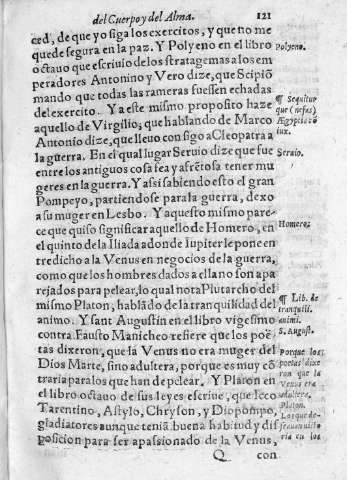 del Cuerpo y del Alma. 121
ced, de que yo siga los exercitos, y que no me
quede segura en la paz. Y Polyeno en el libro
octauo que escriuio de los stratagemas a los em
peradores Antonino y Vero dize, que Scipiõ
mando que todas las rameras fuessen echadas
del exercito. Y a este mismo proposito haze
aquello de Virgilio, que hablando de Marco
Antonio dize, que lleuo consigo a Cleopatra a
la guerra. En el qual lugar Seruio dize que fue
entre los antiguos cosa fea y afrẽtosa tener mu
geres en la guerra. Y assi sabiendo esto el gran
Pompeyo, partiendose para la guerra, dexo
a su muger en Lesbo. Y a questo mismo pare-
ce que quiso significar aquello de Homero, en
el quinto de la Iliada adonde Iupiter le pone en
tredicho a la Venus en negocios de la guerra,
como que los hombres dados a ella no son apa
rejados para pelear, lo qual nota Plutarcho del
mismo Platon, hablãdo de la tranquilidad del
animo. Y sant Augustin en el libro vigesimo
contra Fausto Manicheo refiere que los poë-
tas dixeron, que la Venus no era muger del
Dios Marte, sino adultera, porque es muy cõ
traria para los que han de pelear. Y Platon en
el libro octauo de sus leyes escriue, que Icco
Tarentino, Astylo, Chryson, y Diopompo,
gladiatores aunque teniã buena habitud y dis
posicion para ser apassionado de la Venus,
Q con
Polyeno.
¶ Sequitur
que (nefas)
Ægyptia cõ
iux.
Seruio.
Homero.
¶ Lib. de
tranquili.
animi.
S. August.
Porque los
poetas dixe
ron que la
Venus era
adultera.
Platon.